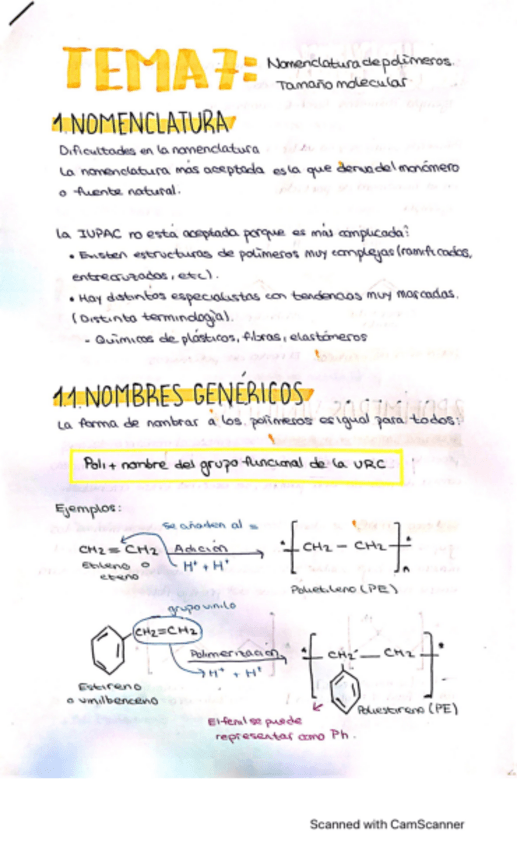 TEMA 7: Nomenclatura de polímeros.
Tamaño molecular
1. NOMENCLATURA
Dificultades en la nomenclatura
La nomenclatura más aceptada es la que deriva del monómero
o fuente natural.
La IUPAC no está aceptada porque es más complicada:
• Existen estructuras de polímeros muy complejas (ramificados,
entrecruzados, etc).
• Hay distintos especialistas con tendencias muy marcadas.
(Distinta terminología).
- Químicos de plásticos, fibras, elastómeros
1.1. NOMBRES GENÉRICOS
La forma de nombrar a los polímeros es igual para todos:
Poli + nombre del grupo funcional de la URC
Ejemplos:
se añaden al =
CH2 = CH2 Adición [ CH2 - CH2 ]n
Etileno o H⁺ + H⁺
eteno
Polietileno (PE)
grupo vinilo
CH2=CH2
Polimerización [ CH2 - CH2 ]
H⁺ + H⁺
Estireno
o vinilbenceno
Poliestireno (PE)
El fenil se puede
representar como Ph.
Scanned with CamScanner